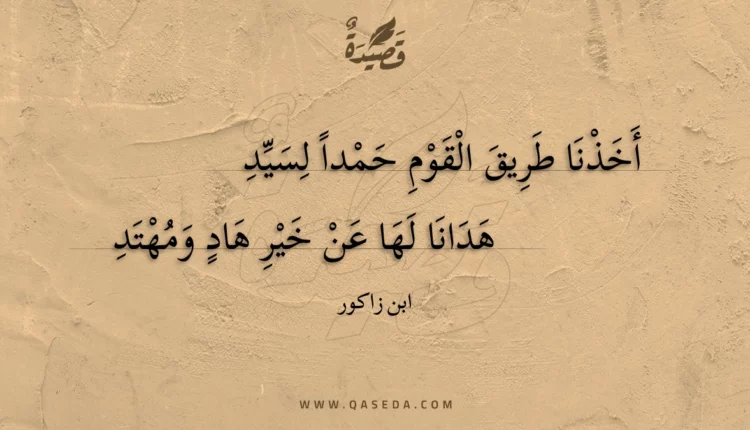 قَصِيدَةٌ
أَخَذْنَا طَرِيقَ الْقَوْمِ حَمْداً لِسَيِّدِ
هَدَانَا لَهَا عَنْ خَيْرِ هَادٍ وَمُهْتَدِ
ابن زاكور
WWW.QASEDA.COM